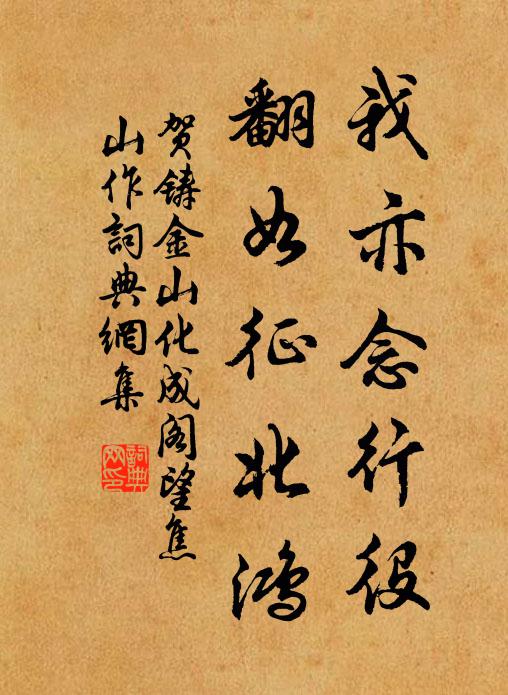 我亦念行役
翻如征北鸿
贺铸金山化成阁望焦
山作詞典網集
詞典
网印